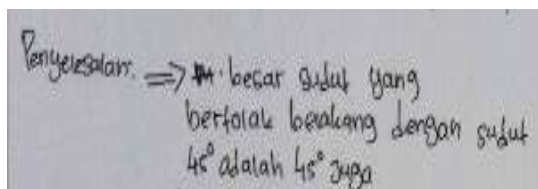 Penyelesaian: => besar sudut yang
bertolak belakang dengan sudut
45° adalah 45° juga